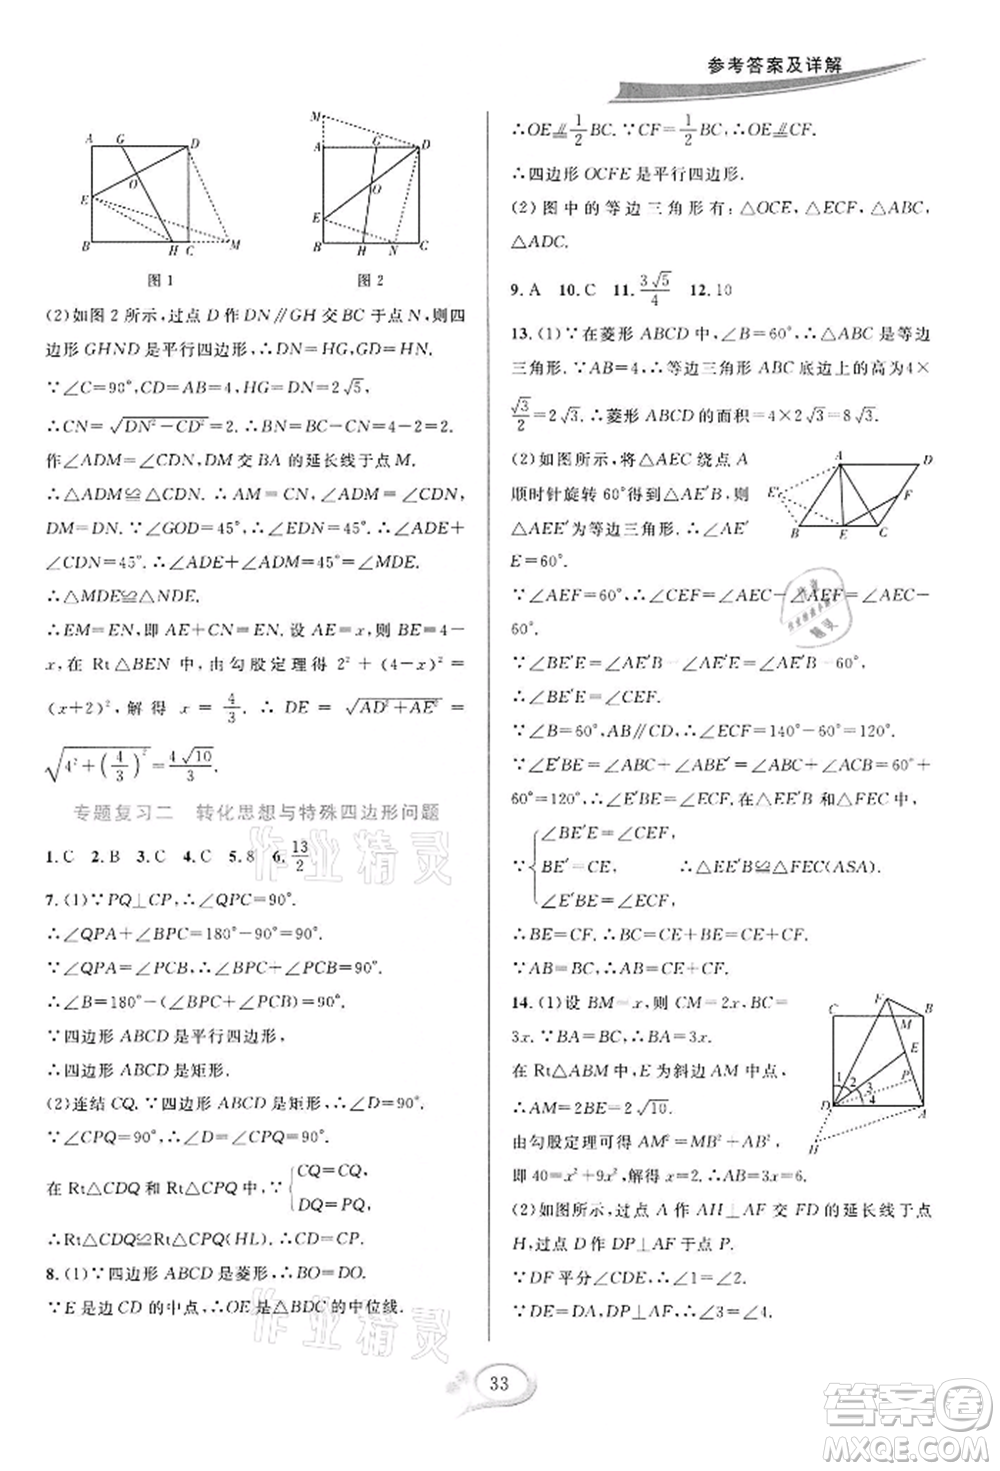 参考答案及详解
A G D O E B H C M
图 1
M A G D O E B H N C
图 2
(2)如图 2 所示,过点 D 作 DN∥GH 交 BC 于点 N,则四
边形 GHND 是平行四边形,∴DN=HG,GD=HN.
∵∠C=90°,CD=AB=4,HG=DN=2√5,
∴CN=√(DN²-CD²)=2.∴BN=BC-CN=4-2=2.
作∠ADM=∠CDN,DM 交 BA 的延长线于点 M.
∴△ADM≌△CDN.∴AM=CN=2,∠M=∠DNC,
DM=DN.∵∠GOD=45°,∴∠EDN=45°,∴∠ADE+
∠CDN=45°.∴∠ADE+∠ADM=45°=∠MDE.
∴△MDE≌△NDE.
∴EM=EN,即 AE+CN=EN.设 AE=x,则 BE=4-
x,在 Rt△BEN 中,由勾股定理得 2²+(4-x)²=
(x+2)²,解得 x=4/3.∴DE=√(AD²+AE²)=
√(4²+(4/3)²)=4√10/3.
专题复习二 转化思想与特殊四边形问题
1.C 2.B 3.C 4.C 5.8 6.13/2
7.(1)∵PQ⊥CP,∴∠QPC=90°.
∴∠QPA+∠BPC=180°-90°=90°.
∵∠QPA=∠PCB,∴∠BPC+∠PCB=90°.
∴∠B=180°-(∠BPC+∠PCB)=90°.
∵四边形 ABCD 是平行四边形,
∴四边形 ABCD 是矩形.
(2)连结 CQ.∵四边形 ABCD 是矩形,∴∠D=90°.
∵∠CPQ=90°,∴∠D=∠CPQ=90°.
在 Rt△CDQ 和 Rt△CPQ 中,∵{CQ=CQ, DQ=PQ,
∴Rt△CDQ≌Rt△CPQ(HL).∴CD=CP.
8.(1)∵四边形 ABCD 是菱形,∴BO=DO.
∵E 是边 CD 的中点,∴OE 是△BDC 的中位线.
∴OE∥=1/2BC.∵CF=1/2BC,∴OE∥=CF.
∴四边形 OCFE 是平行四边形.
(2)图中的等边三角形有:△OCE,△ECF,△ABC,
△ADC.
9.A 10.C 11.3√5/4 12.10
13.(1)∵在菱形 ABCD 中,∠B=60°,∴△ABC 是等边
三角形.∵AB=4,∴等边三角形 ABC 底边上的高为4×
√3/2=2√3.∴菱形 ABCD 的面积=4×2√3=8√3.
(2)如图所示,将△AEC 绕点 A
顺时针旋转 60°得到△AE′B,则
△AEE′为等边三角形,∴∠AE′
E=60°.
A D E′ F B E C
∵∠AEF=60°,∴∠CEF=∠AEC-∠AEF=∠AEC-
60°.
∵∠BE′E=∠AE′B-∠AE′E=∠AE′B-60°,
∴∠BE′E=∠CEF.
∵∠B=60°,AB∥CD,∴∠ECF=180°-60°=120°.
∵∠E′BE=120°=∠ECF,∴在△E′BE 和△ECF 中,
∵{∠BE′E=∠CEF, BE′=CE, ∠E′BE=∠ECF, ∴△BEE′≌△FEC(ASA).
∴BE=CF.∴BC=CE+BE=CE+CF.
∵AB=BC,∴AB=CE+CF.
14.(1)设 BM=x,则 CM=2x,BC=
3x.∵BA=BC,∴BA=3x.
在 Rt△ABM 中,E 为斜边 AM 中点,
∴AM=2BE=2√10.
由勾股定理可得 AM²=MB²+AB²,
即 40=x²+9x²,解得 x=2.∴AB=3x=6.
C F B M E P 1 2 3 4 D A H
(2)如图所示,过点 A 作 AH⊥AF 交 FD 的延长线于点
H,过点 D 作 DP⊥AF 于点 P.
∵DF 平分∠CDE,∴∠1=∠2.
∵DE=DA,DP⊥AF,∴∠3=∠4.
33
作业精灵
作业精灵
答案圈
MXQE.COM